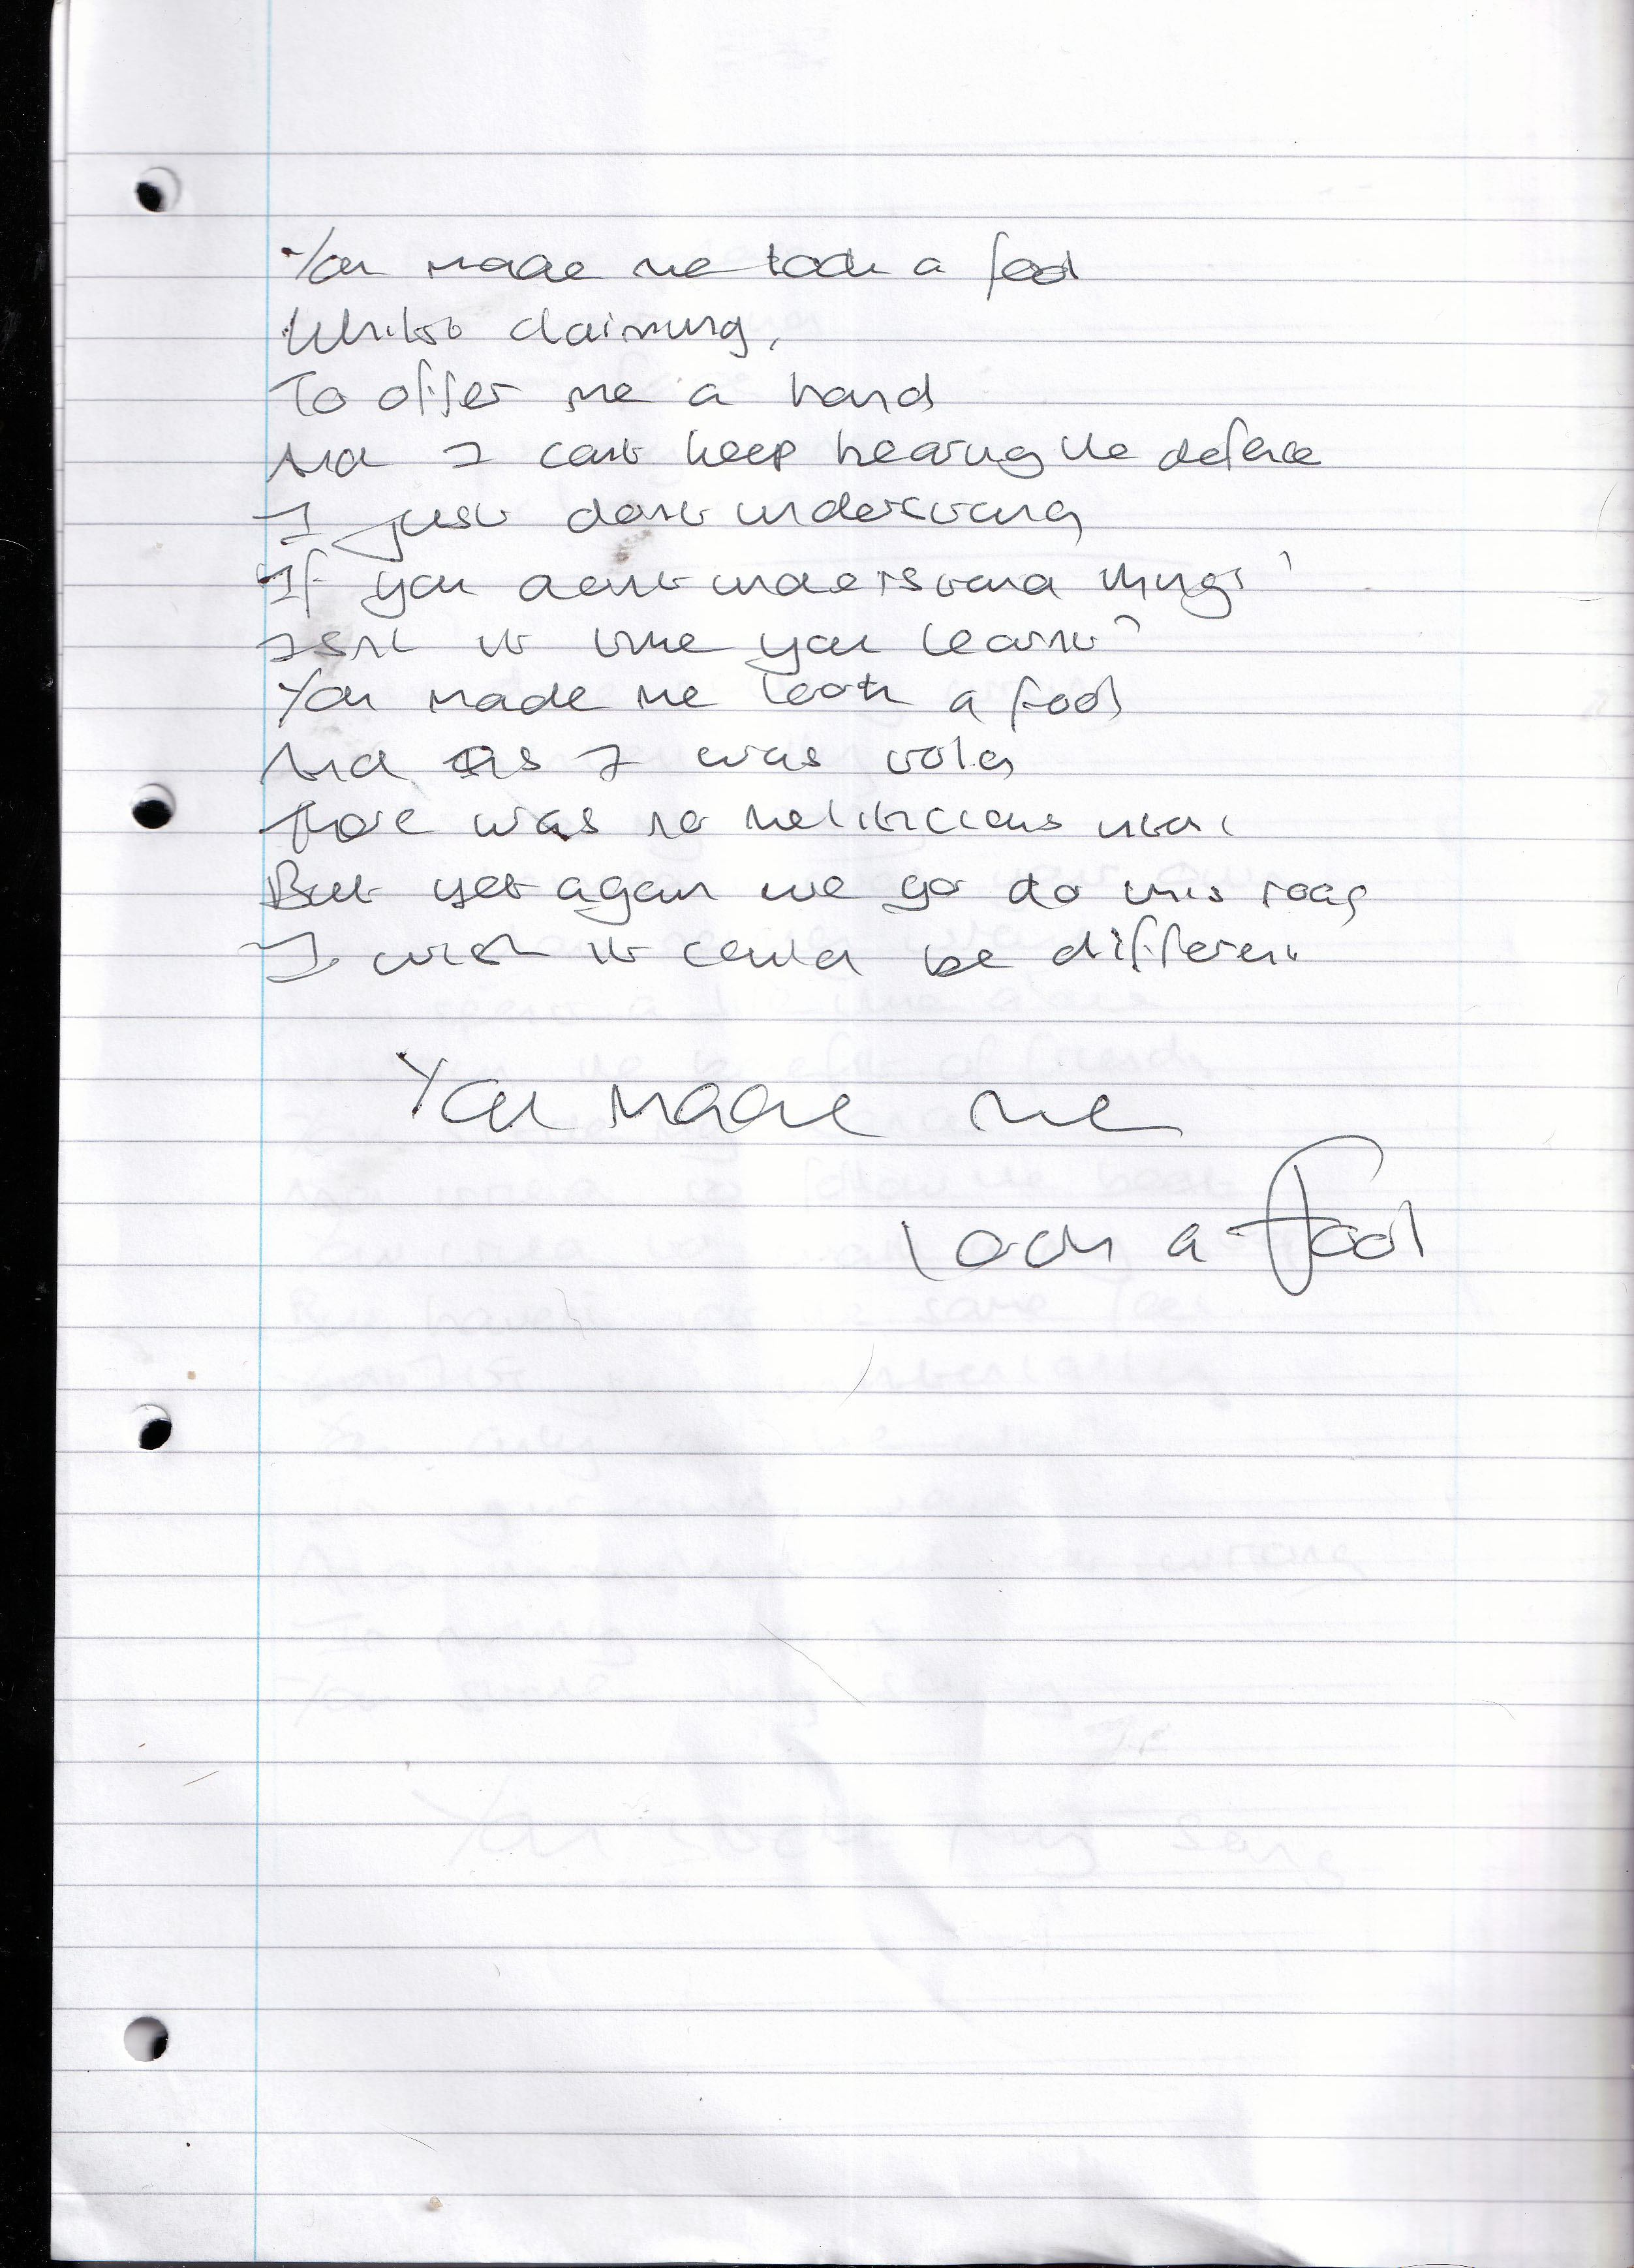 You made me look a fool
Whilst claiming,
To offer me a hand
And I cant keep hearing the defence
I just dont understand
If you dont understand things
Isnt it time you learnt?
You made me look a fool
And as I was told
There was no
But yet again we go do this road
I wish it could be different
You made me
look a fool